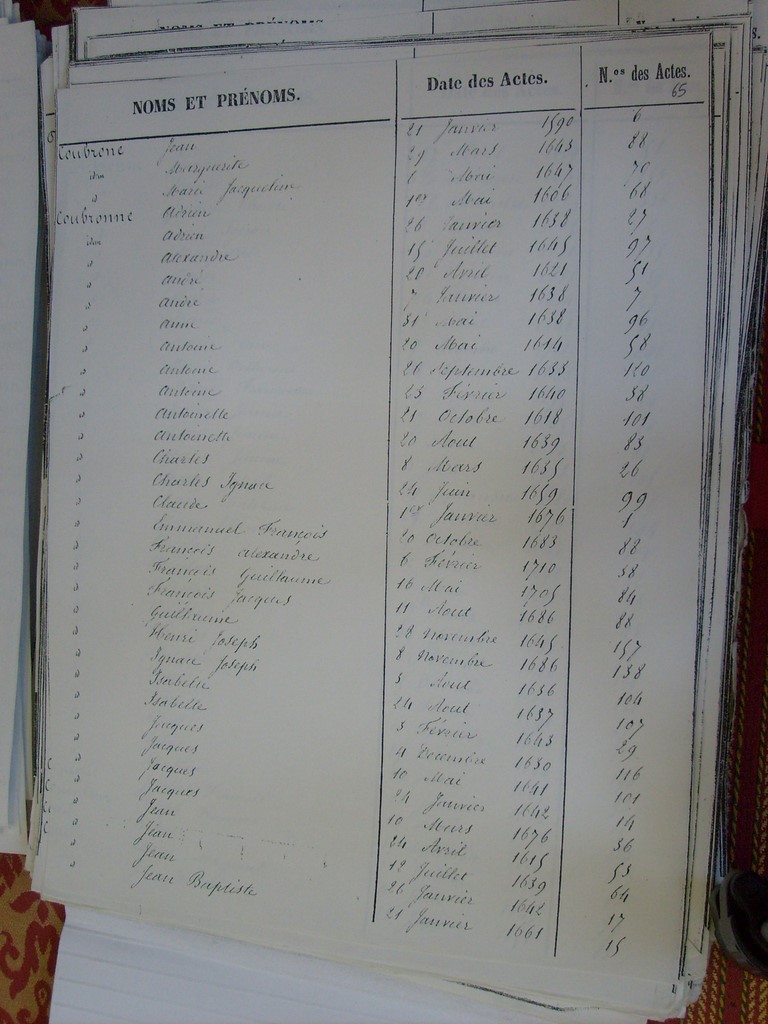 NOMS ET PRÉNOMS. Date des Actes. N.os des Actes.
65
Coubrone Jean 21 Janvier 1590 6
idm Marguerite 29 Mars 1643 88
d Marie Jacqueline 6 Mai 1647 70
Coubronne Adrien 1er Mai 1606 68
idm Adrien 26 Janvier 1638 27
d Alexandre 15 Juillet 1645 97
d André 20 Avril 1621 51
d André 7 Janvier 1638 7
d Anne 31 Mai 1638 96
d Antoine 20 Mai 1614 58
d Antoine 26 Septembre 1633 120
d Antoine 23 Février 1640 38
d Antoinette 21 Octobre 1618 101
d Antoinette 20 Aout 1639 83
d Charles 8 Mars 1635 26
d Charles Ignace 24 Juin 1659 99
d Claude 1er Janvier 1676 1
d Emmanuel François 20 Octobre 1683 88
d François Alexandre 6 Février 1710 38
d François Guillaume 16 Mai 1705 84
d François Jacques 11 Aout 1686 88
d Guillaume 28 Novembre 1645 157
d Henri Joseph 8 Novembre 1686 138
d Ignace Joseph 3 Aout 1656 104
d Isabelle 24 Aout 1637 107
d Isabelle 3 Février 1643 29
d Jacques 4 Decembre 1630 116
d Jacques 10 Mai 1641 101
d Jacques 24 Janvier 1642 14
d Jacques 10 Mars 1676 36
d Jean 24 Avril 1615 53
d Jean 12 Juillet 1639 64
d Jean 26 Janvier 1642 17
d Jean Baptiste 21 Janvier 1661 15